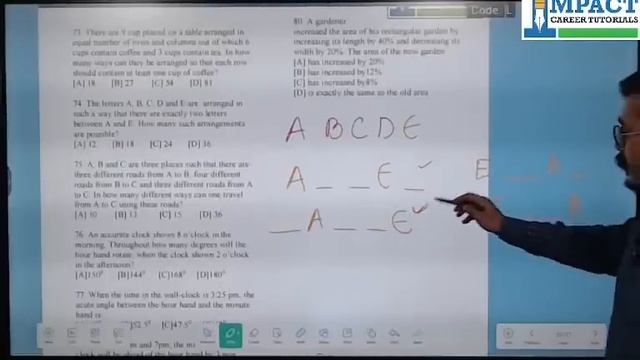 IMPACT
CAREER TUTORIALS
Code L
73 There are 9 cup placed on a table arranged in
equal number of rows and columns out of which 6
cups contain coffee and 3 cups contain tea. In how
many ways can they be arranged so that each row
should contain at least one cup of coffee?
[A] 18 [B] 27 [C] 54 [D] 81
74 The letters A, B, C, D and E are arranged in
such a way that there are exactly two letters
between A and E. How many such arrangements
are possible?
[A] 12 [B] 18 [C] 24 [D] 36
75 A, B and C are three places such that there are
three different roads from A to B, four different
roads from B to C and three different roads from A
to C. In how many different ways can one travel
from A to C using these roads?
[A] 10 [B] 13 [C] 15 [D] 36
76 An accurate clock shows 8 o'clock in the
morning. Throughout how many degrees will the
hour hand rotate, when the clock shows 2 o'clock
in the afternoon?
[A]150° [B]144° [C]168° [D]180°
77 When the time in the wall-clock is 3:25 pm, the
acute angle between the hour hand and the minute
hand is
]52.5° [C]47.5°
m and 7pm, the
80 A gardener
increased the area of his rectangular garden by
increasing its length by 40% and decreasing its
width by 20%. The area of the new garden
[A] has increased by 20%
[B] has increased by 12%
[C] has increased by 8%
[D] is exactly the same as the old area
A B C D E
A _ _ E _
_ A _ _ E
E _ _ A _